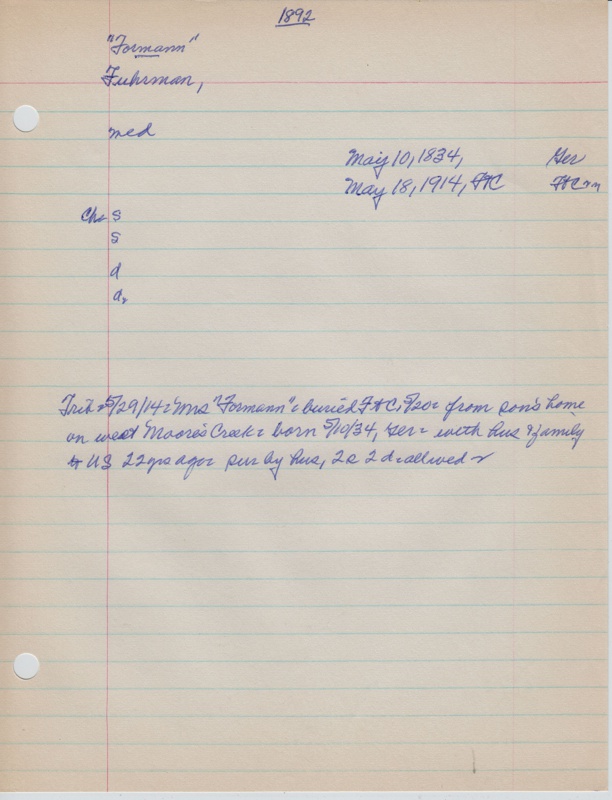 1892
"Formann"
Fuhrman,
med
May 10, 1834, Ger
May 18, 1914, FHC FHCnn
Ch- s
s
d
d,
Trib 5/29/14 - Mrs "Formann" - buried FHC, 5/20 - from son's home
on west Moore's Creek - born 5/10/34, Ger - with hus & family
to US 22 yrs ago - sur by hus, 2s 2d - all wed -